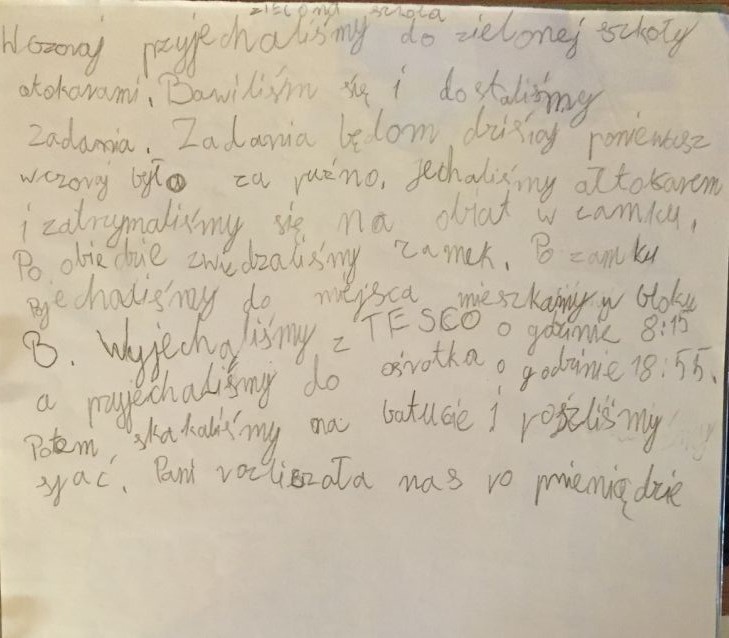 zielona szkoła
Wczoraj przyjechaliśmy do zielonej szkoły
atokarami. Bawiliśm się i dostaliśmy
zadania. Zadania będom dziśiaj poniewasz
wczoraj było za puźno. Jechaliśmy ałtokarem
i zatrzymaliśmy się na obiat w zamku.
Po obiedzie zwiedzaliśmy zamek. Po zamku
jechaliśmy do miejsca mieszkamy w bloku
B. Wyjechaliśmy z TESCO o godzinie 8:15
a przyjechaliśmy do ośrotka o godzinie 18:55.
Potem skakaliśmy na batucie i poszliśmy
spać. Pani rozliszała nas po pnieniędzie